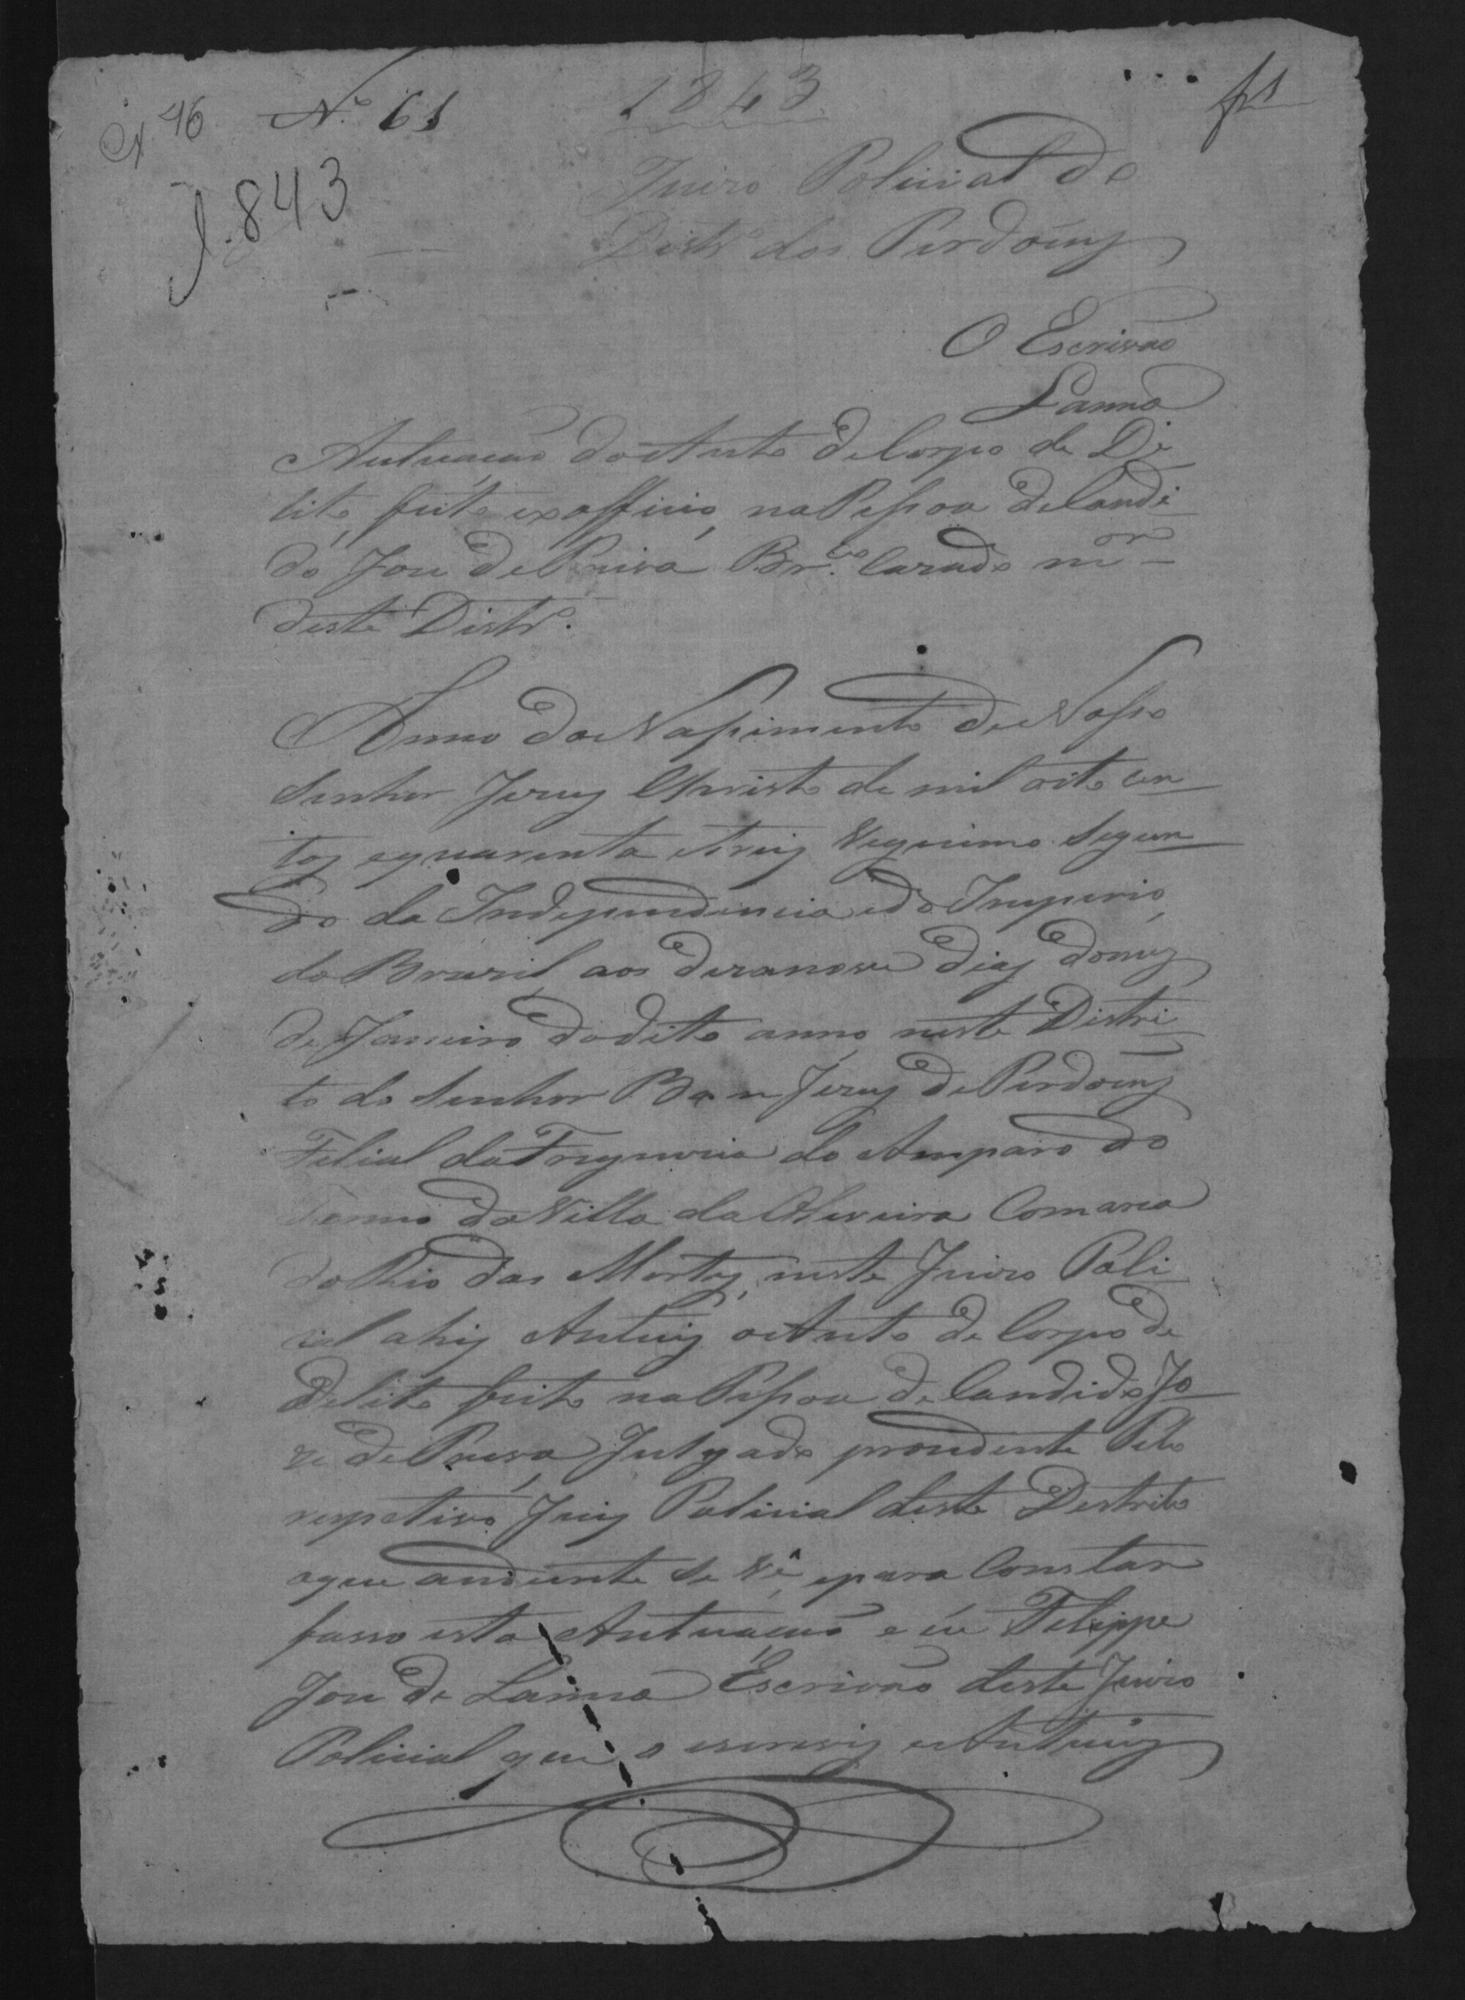 Cx 46 Nº 61 1843 fs 1
1.843
Juizo Policial do
Distrº dos Perdoens
O Escrivão
Lanna
Autuação do Auto de Corpo de De
lito feito ex officio, na Pessoa de Candi
do José de Paiva Br.co Cazado m.or
deste Distrº.
Anno do Nassimento de Nosso
Senhor Jezus Christo de mil oito cen
tos e quarenta e treis Vegessimo Segun
do da Independencia e do Imperio
do Brazil, aos dezanove dias do mez
de Janeiro do dito anno, neste Distri
to do Senhor Bom Jezus de Perdoens
Filial da Freguezia do Amparo do
Termo da Villa da Oliveira Comarca
do Rio das Mortes, neste Juizo Poli
cial ahi Autuei o Auto de Corpo de
Delito feito na Pessoa de Candido Jo
ze de Paiva Julgado procidente Pelo
respetivo Juiz Policial deste Destrito
o que andiente se Vê, e para Constar
fasso esta Autuação e eu Felippe
José de Lanna Escrivão deste Juizo
Policial que o escrevi e Autuei